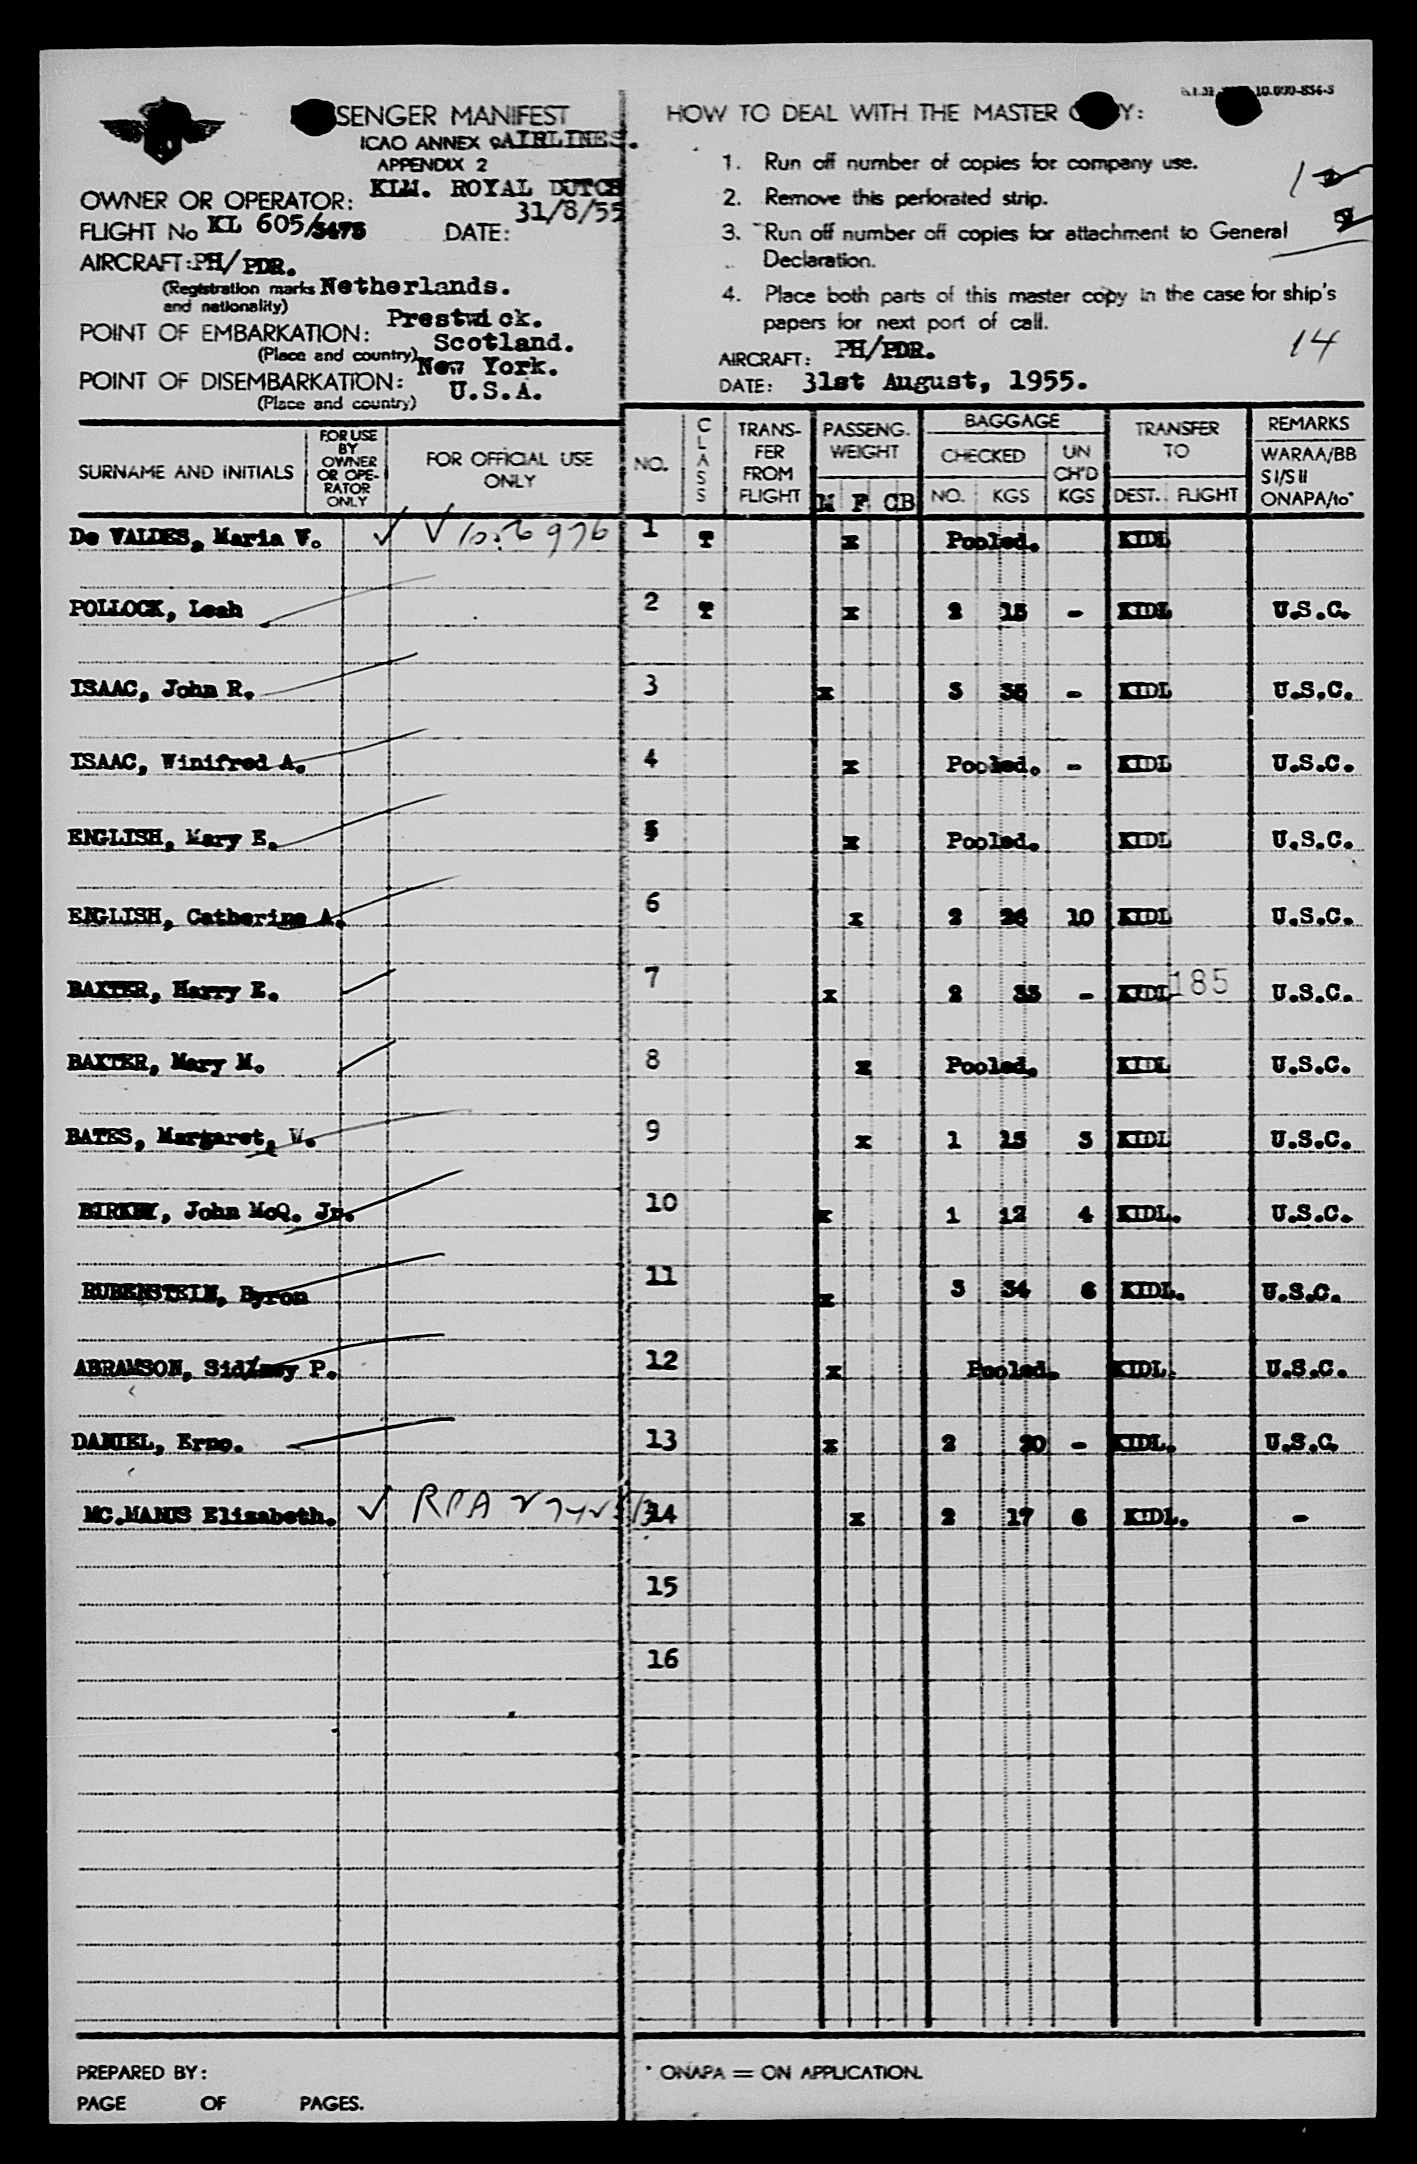 SENGER MANIFEST
ICAO ANNEX 9 AIRLINES.
APPENDIX 2
OWNER OR OPERATOR: KLM. ROYAL DUTCH
FLIGHT No KL 605/ DATE: 31/8/55
AIRCRAFT: PH/PDR.
(Registration marks and nationality) Netherlands.
POINT OF EMBARKATION: Prestwick. Scotland.
(Place and country)
POINT OF DISEMBARKATION: New York. U.S.A.
(Place and country)
HOW TO DEAL WITH THE MASTER C Y:
1. Run off number of copies for company use.
2. Remove this perforated strip.
3. Run off number off copies for attachment to General
Declaration.
4. Place both parts of this master copy in the case for ship's
papers for next port of call.
14
AIRCRAFT: PH/PDR.
DATE: 31st August, 1955.
SURNAME AND INITIALS FOR USE BY OWNER OR OPE- RATOR ONLY FOR OFFICIAL USE ONLY NO. CLASS TRANS- FER FROM FLIGHT PASSENG. WEIGHT M F CB BAGGAGE CHECKED NO. KGS UN CH'D KGS TRANSFER TO DEST. FLIGHT REMARKS WARAA/BB S I/S II ONAPA/to*
De VALDES, Maria V. 1 T x Pooled. KIDL
POLLOCK, Leah 2 T x 2 15 - KIDL U.S.C.
ISAAC, John R. 3 x 3 35 - KIDL U.S.C.
ISAAC, Winifred A. 4 x Pooled. - KIDL U.S.C.
ENGLISH, Mary E. 5 x Pooled. KIDL U.S.C.
ENGLISH, Catherine A. 6 x 2 26 10 KIDL U.S.C.
BAXTER, Harry E. 7 x 2 33 - KIDL 185 U.S.C.
BAXTER, Mary M. 8 x Pooled. KIDL U.S.C.
BATES, Margaret, W. 9 x 1 15 3 KIDL U.S.C.
BIRKBY, John McQ. Jr. 10 x 1 12 4 KIDL. U.S.C.
RUBENSTEIN, Byron 11 x 3 34 6 KIDL. U.S.C.
ABRAMSON, Sidney P. 12 x Pooled. KIDL. U.S.C.
DANIEL, Erno. 13 x 2 20 - KIDL. U.S.C.
MC.MANUS Elizabeth. 14 x 2 17 6 KIDL. -
15
16
PREPARED BY:
PAGE OF PAGES.
* ONAPA = ON APPLICATION.